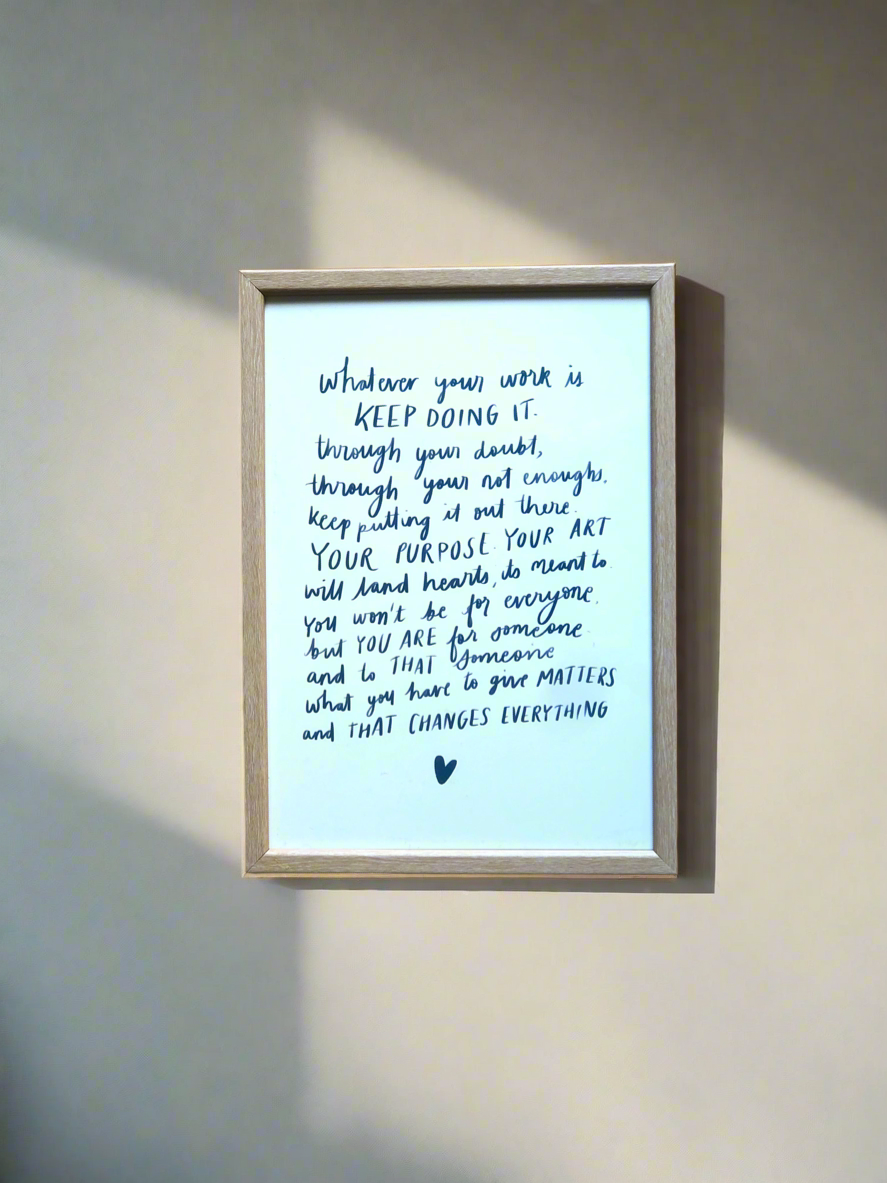 whatever your work is
KEEP DOING IT.
through your doubt,
through your not enoughs.
keep putting it out there.
YOUR PURPOSE. YOUR ART
will land hearts, its meant to.
you won't be for everyone.
but YOU ARE for someone.
and to THAT someone
what you have to give MATTERS
and THAT CHANGES EVERYTHING